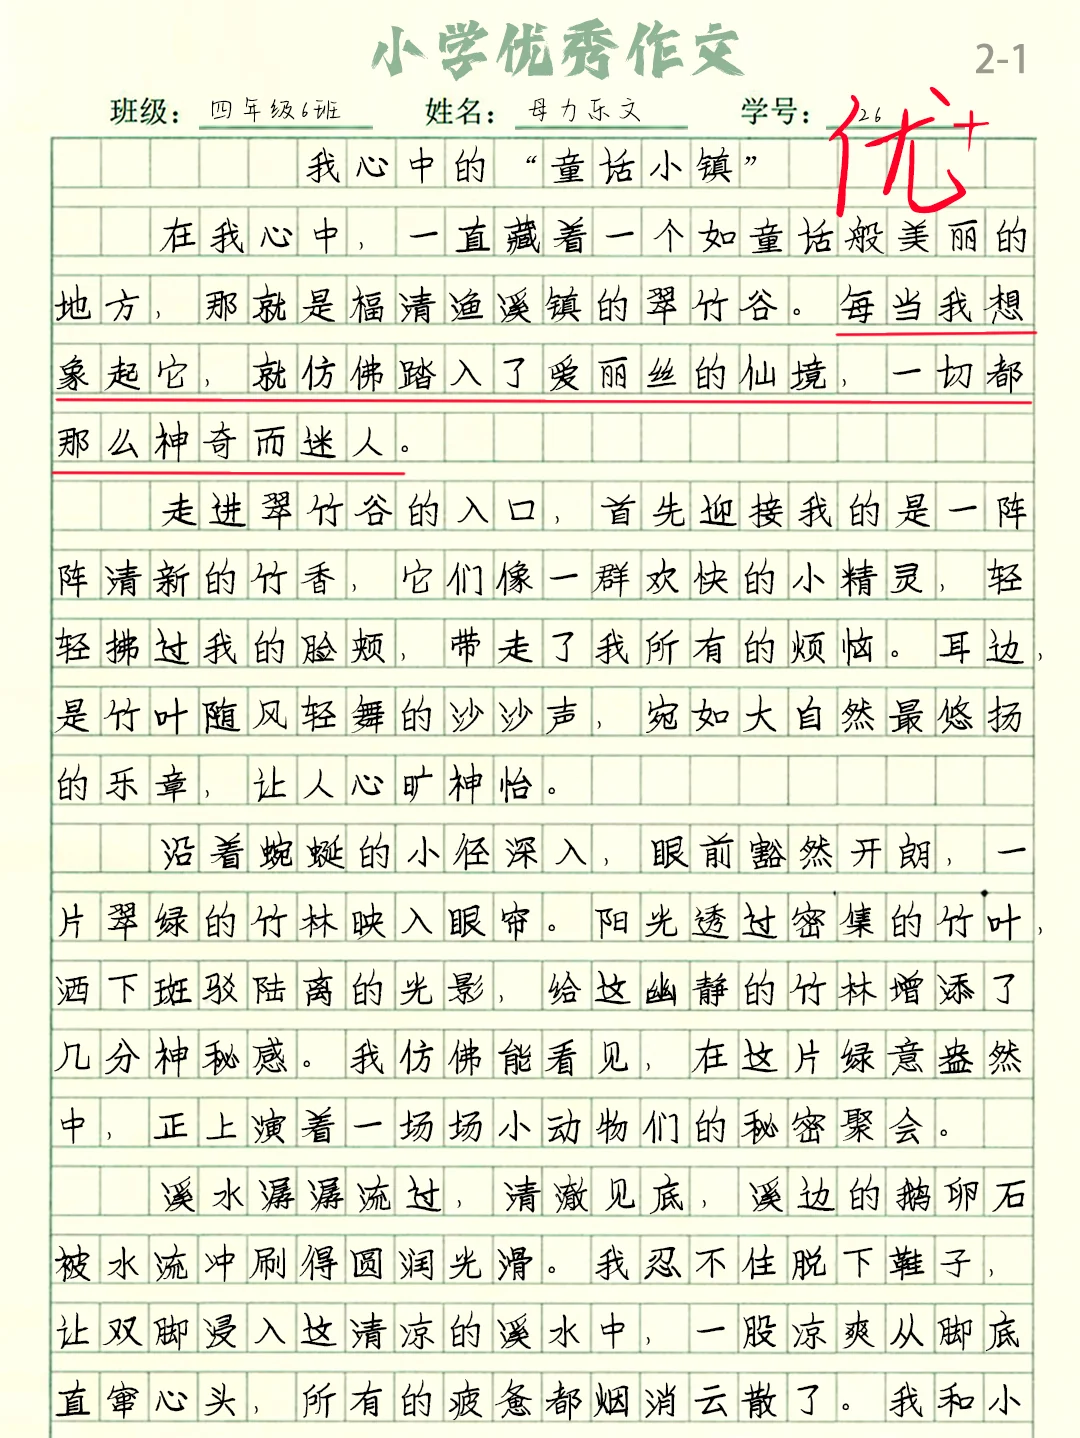 小学优秀作文
2-1
班级：四年级6班 姓名：母力乐文 学号：26
优+
我心中的“童话小镇”
在我心中，一直藏着一个如童话般美丽的
地方，那就是福清渔溪镇的翠竹谷。每当我想
象起它，就仿佛踏入了爱丽丝的仙境，一切都
那么神奇而迷人。
走进翠竹谷的入口，首先迎接我的是一阵
阵清新的竹香，它们像一群欢快的小精灵，轻
轻拂过我的脸颊，带走了我所有的烦恼。耳边，
是竹叶随风轻舞的沙沙声，宛如大自然最悠扬
的乐章，让人心旷神怡。
沿着蜿蜒的小径深入，眼前豁然开朗，一
片翠绿的竹林映入眼帘。阳光透过密集的竹叶，
洒下斑驳陆离的光影，给这幽静的竹林增添了
几分神秘感。我仿佛能看见，在这片绿意盎然
中，正上演着一场场小动物们的秘密聚会。
溪水潺潺流过，清澈见底，溪边的鹅卵石
被水流冲刷得圆润光滑。我忍不住脱下鞋子，
让双脚浸入这清凉的溪水中，一股凉爽从脚底
直窜心头，所有的疲惫都烟消云散了。我和小